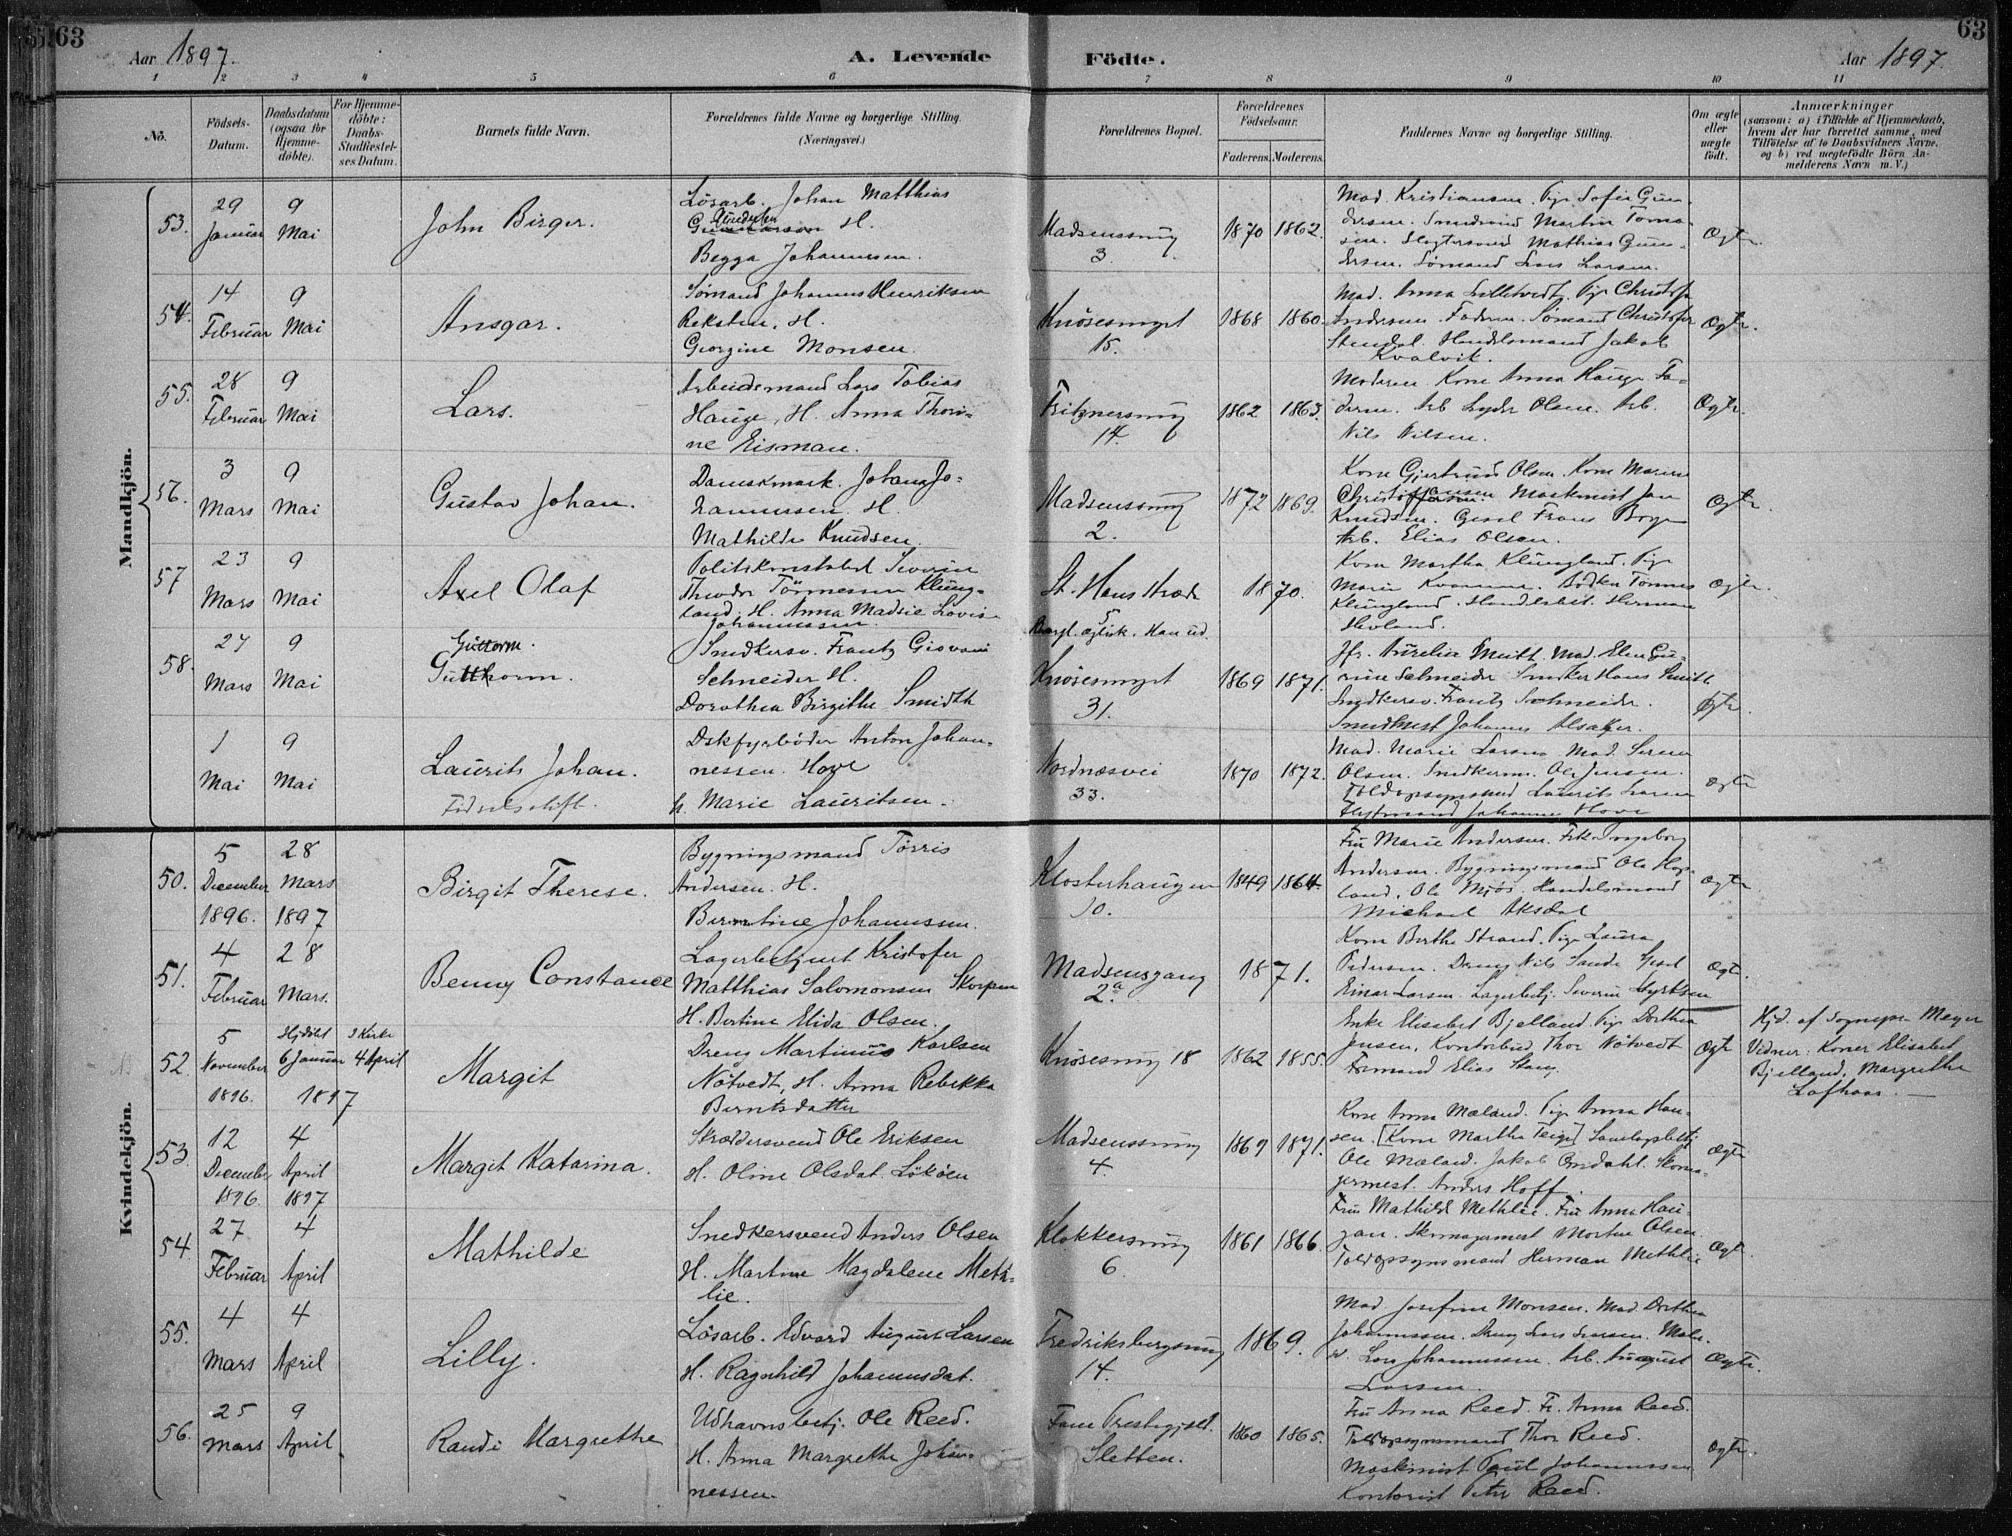 63
63
Aar 1897.
A. Levende
Födte.
Aar 1897.
1 2 3 4 5 6 7 8 9 10 11
Nö.
Födsels-
Datum.
Daabsdatum
(ogsaa for
Hjemme-
döbte).
For Hjemme-
döbte:
Daabs-
Stadfæstel-
ses Datum.
Barnets fulde Navn.
Forældrenes fulde Navne og borgerlige Stilling.
(Næringsvei.)
Forældrenes Bopæl.
Forældrenes
Födselsaar.
Faderens.
Moderens.
Faddernes Navne og borgerlige Stilling.
Om ægte
eller
uægte
født.
Anmærkninger
(saasom: a) i Tilfælde af Hjemmedaab,
hvem der har forrettet samme, med
Tilföielse af to Daabsvidners Navne.
og b) ved uægtefödte Börn An-
melderens Navn m. V.)
Mandkjön.
53.
29
Januar
9
Mai
John Birger.
Lösarb. Johan Matthias
Gundersen
H.
Begga Johannesen.
Madsenssmug
3.
1870 1862.
Mad. Kristiansen. Pige Sofie Gun-
dersen. Smedsvend Martin Toma-
sen. Slagtersvend Mathias Gun-
dersen. Sømand Lars Larsen.
Ægte.
54.
14
Februar
9
Mai
Ansgar.
Sömand Johannes Henriksen
Reksten. H.
Georgine Monsen.
Knösesmuget
15.
1868 1860.
Andersen. Faderen. Sømand Christofer
Stendal. Handelsmand Jakob
Kvalvik.
Ægte.
55.
28
Februar
9
Mai
Lars.
Arbeidsmand Lars Tobias
Hauge, H. Anna Thori-
ne Eisman.
Fritznersmug
14.
1862 1863.
Moderen Kone Anna Hauge Fa-
deren. Arb Lyder Olsen. Arb.
Nils Nilsen.
Ægte.
56.
3
Mars
9
Mai
Gustav Johan.
Johan Jo-
hannessen. H.
Mathilde Knudsen.
Madsenssmug
2.
1872 1869.
Kone Gjertrud Olsen. Kone Maren
Maskinist Jan
Knudsen. Gesel Frans Berge
Arb. Elias Olsen.
Ægte.
57
23
Mars
9
Mai
Axel Olaf
Politikonstabel Severin
Theodor Törnessen Klung-
land. H. Anna Madsie Lovise
Johannessen.
St. Hans Stræde
5
1870.
Kone Martha Klungland. Pige
Marie Kvamme. Bødker Tönnes
Klungland. Handelsbet. Herman
Hevland.
Ægte.
58.
27
Mars
9
Mai
Guttorm.
Gutthorm.
Snedkersv. Frantz Giovani
Schneider H.
Dorothea Birgitte Smidth
Knösesmuget
31.
1869 1871.
Jfr. Aurelia Smitt. Mad. Elen Gu-
rine Schneider Snedker Hans Smitt
Snedkersv. Frantz Schneider.
Smedmest Johannes Alsaker.
Ægte.
1
Mai
9
Mai
Laurits Johan.
Fødselsstift.
Dskfyrböder Anton Johan-
nessen. Hove
H. Marie Lauritsen.
Nordnæsvei
33.
1870 1872.
Mad. Marie Larsen Mad. Seren
Olsen. Snedkerm. Ole Jensen.
Toldopsynsmand Laurits Larsen
Johannes Hove
Ægte
Kvindekjön.
50.
5
December
1896.
28
Mars
1897
Birgit Therese.
Bygningsmand Törris
Andersen. H.
Berentine Johannessen.
Klosterhaugen
10.
1849 1864.
Fru Marie Andersen. Frk. Ingeborg
Andersen. Bygningsmand Ole Hop-
land. Ole Mjös. Handelsmand
Michael Aksdal
Ægte
51.
4
Februar
28
Mars.
Benny Constance
Lagerbetjent Kristofer
Matthias Salomonsen Skorpen
H. Bertine Elida Olsen.
Madsensgang
2.a
1871.
Kone Berthe Strand. Pige Laura
Pedersen. Dreng Nils Sande Gesel
Einar Larsen. Lagerbetj. Severin Gyrtsen
Ægte.
52.
5
November
1896.
Hjdöbt
6 Januar
1897
I Kirke
4 April
Margit
Dreng Martinus Karlsen
Nötvedt, H. Anna Rebekka
Berntsdatter
Knösesmug 18
1862 1855.
Enke Elisabet Bjelland. Pige Dorthea
Jensen. Kontorbud Thor Nötvedt
Formand Elias Stang
Ægte
Hjd. af Sognepr Meyer
Vidner: Koner Elisabet
Bjelland, Margrethe
Lofhaas.
53.
12
December
1896.
4
April
1897
Margit Katarina.
Skræddersvend Ole Eriksen
H. Oline Olsdat. Lököen
Madsenssmug
4.
1869 1871.
Kone Anna Mæland. Pige Anna Han-
sen. [Kone Martha Teige]
Ole Mæland. Jakob Opdahl. Skoma-
germest. Anders Hoff.
Ægte
54.
27
Februar
4
April
Mathilde
Snedkersvend Anders Olsen
H. Martine Magdalene Meth-
lie.
Klokkersmug
6.
1861 1866.
Fru Mathilde Methlie. Fru Anna Hau-
gan. Skomagermest Morten Olsen.
Toldopsynsmand Herman Methlie
Ægte.
55.
4
Mars
4
April
Lilly.
Lösarb. Edvard August Larsen
H. Ragnhild Johannesdat.
Fredriksbergsmug
14.
1869.
Mad Josefine Monsen. Mad Dorthea
Johannessen. Dreng Lars Larsen. Male-
sv. Lars Johannessen. Arb. August
Larsen.
Ægte.
56.
25
Mars
9
April
Randi Margrethe
Udhavnsbetj. Ole Reed.
H. Anna Margrethe Johan-
nessen.
Fane Prestegjeld.
Sletten.
1860 1865.
Fru Anna Reed. Fr. Anna Reed.
Toldopsynsmand Thor Reed.
Maskinist Paul Johannessen
Kontorist Peter Reed.
Ægte.